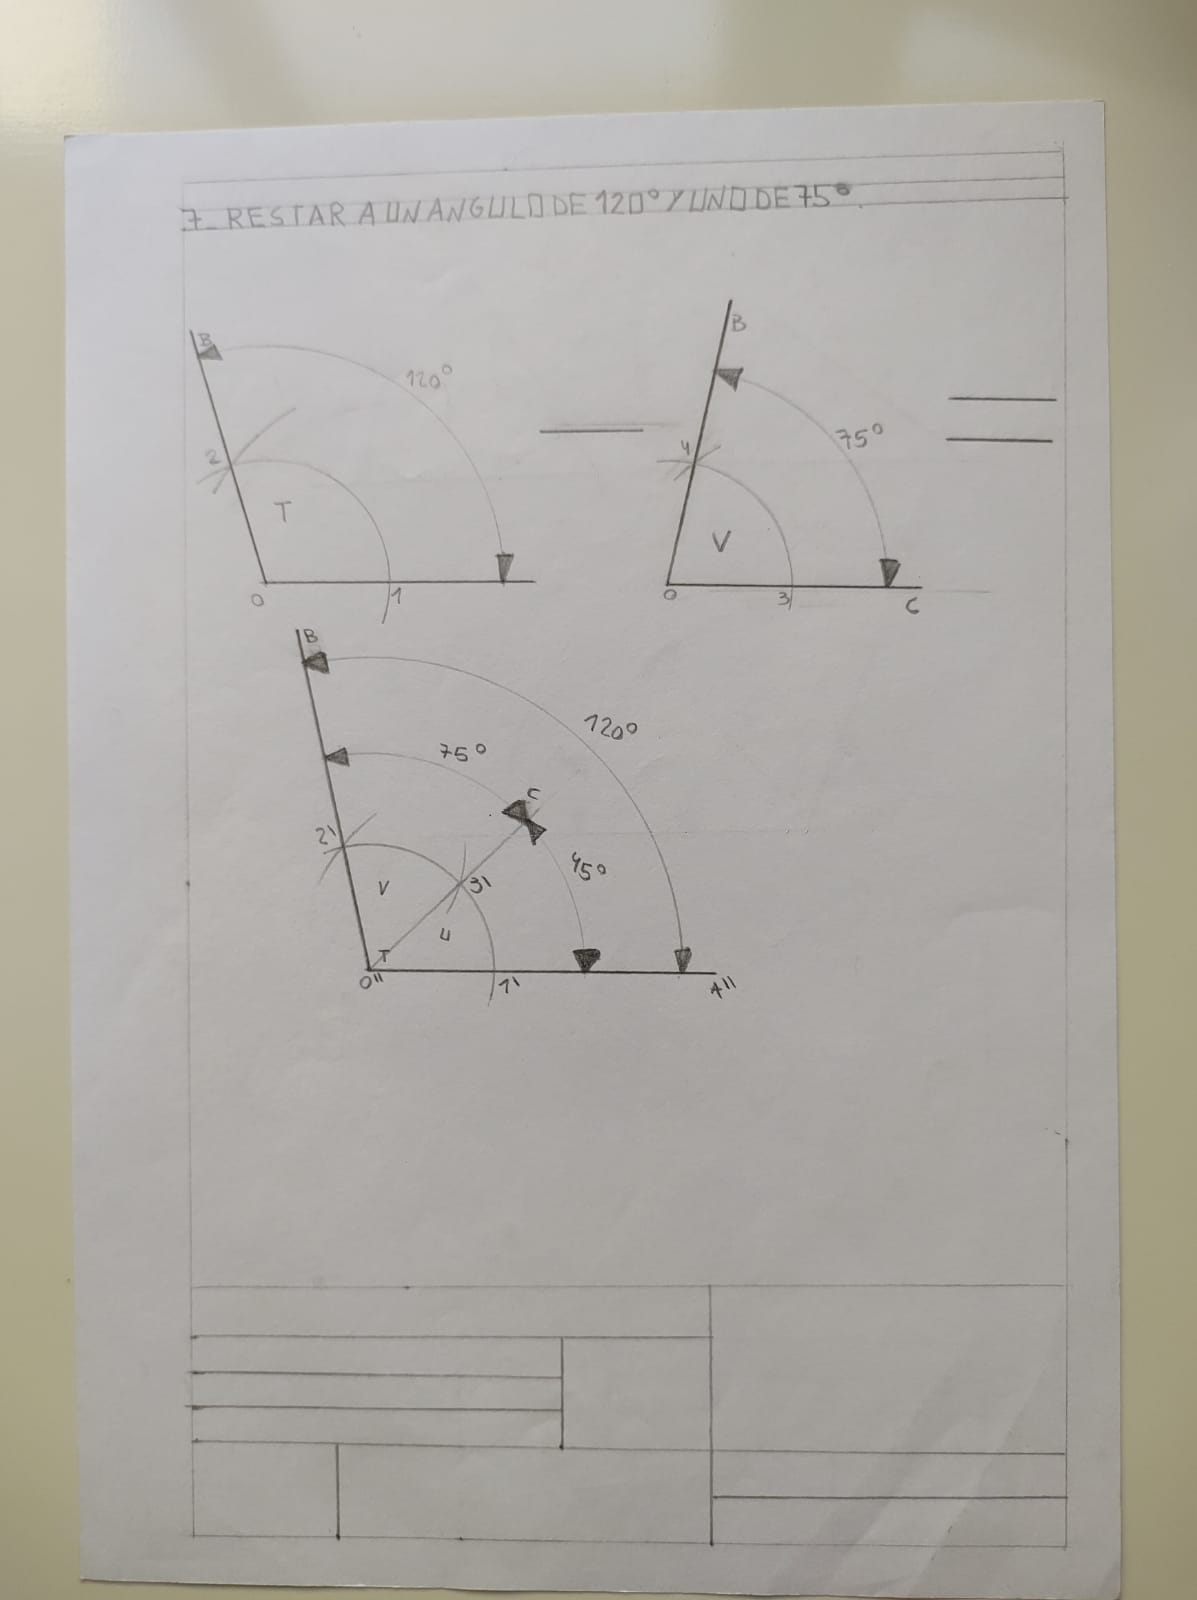 7_ RESTAR A UN ANGULO DE 120° Y UNO DE 75°.
B
120°
2
T
O
1
B
75°
4
V
O
3
C
B
120°
75°
C
2'
45°
V
3'
U
T
O"
1'
A"